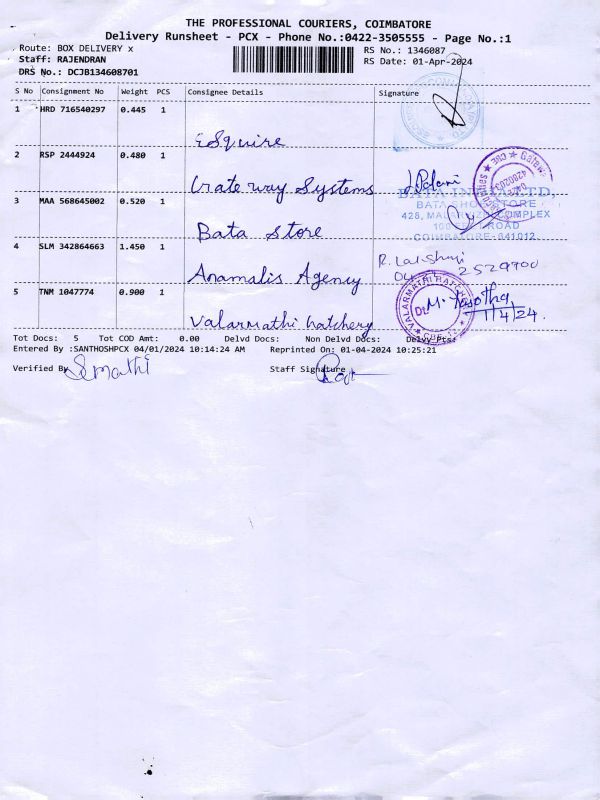 THE PROFESSIONAL COURIERS, COIMBATORE
Delivery Runsheet - PCX - Phone No.:0422-3505555 - Page No.:1
Route: BOX DELIVERY x RS No.: 1346087
Staff: RAJENDRAN RS Date: 01-Apr-2024
DRS No.: DCJB134608701
S No Consignment No Weight PCS Consignee Details Signature
1 HRD 716540297 0.445 1
Esquire
2 RSP 2444924 0.480 1
Crate way Systems
3 MAA 568645002 0.520 1
BATA INDIA LTD.
BATA SHOE STORE
428, COMPLEX
ROAD
COIMBATORE-641012
Bata Store
4 SLM 342864663 1.450 1
2529700
Anamalis Agency
5 TNM 1047774 0.900 1
VALARMATHI HATCHERY
1/4/24.
Valarmathi hatchery
Tot Docs: 5 Tot COD Amt: 0.00 Delvd Docs: Non Delvd Docs: Delvy Pts:
Entered By :SANTHOSHPCX 04/01/2024 10:14:24 AM Reprinted On: 01-04-2024 10:25:21
Verified By Staff Signature